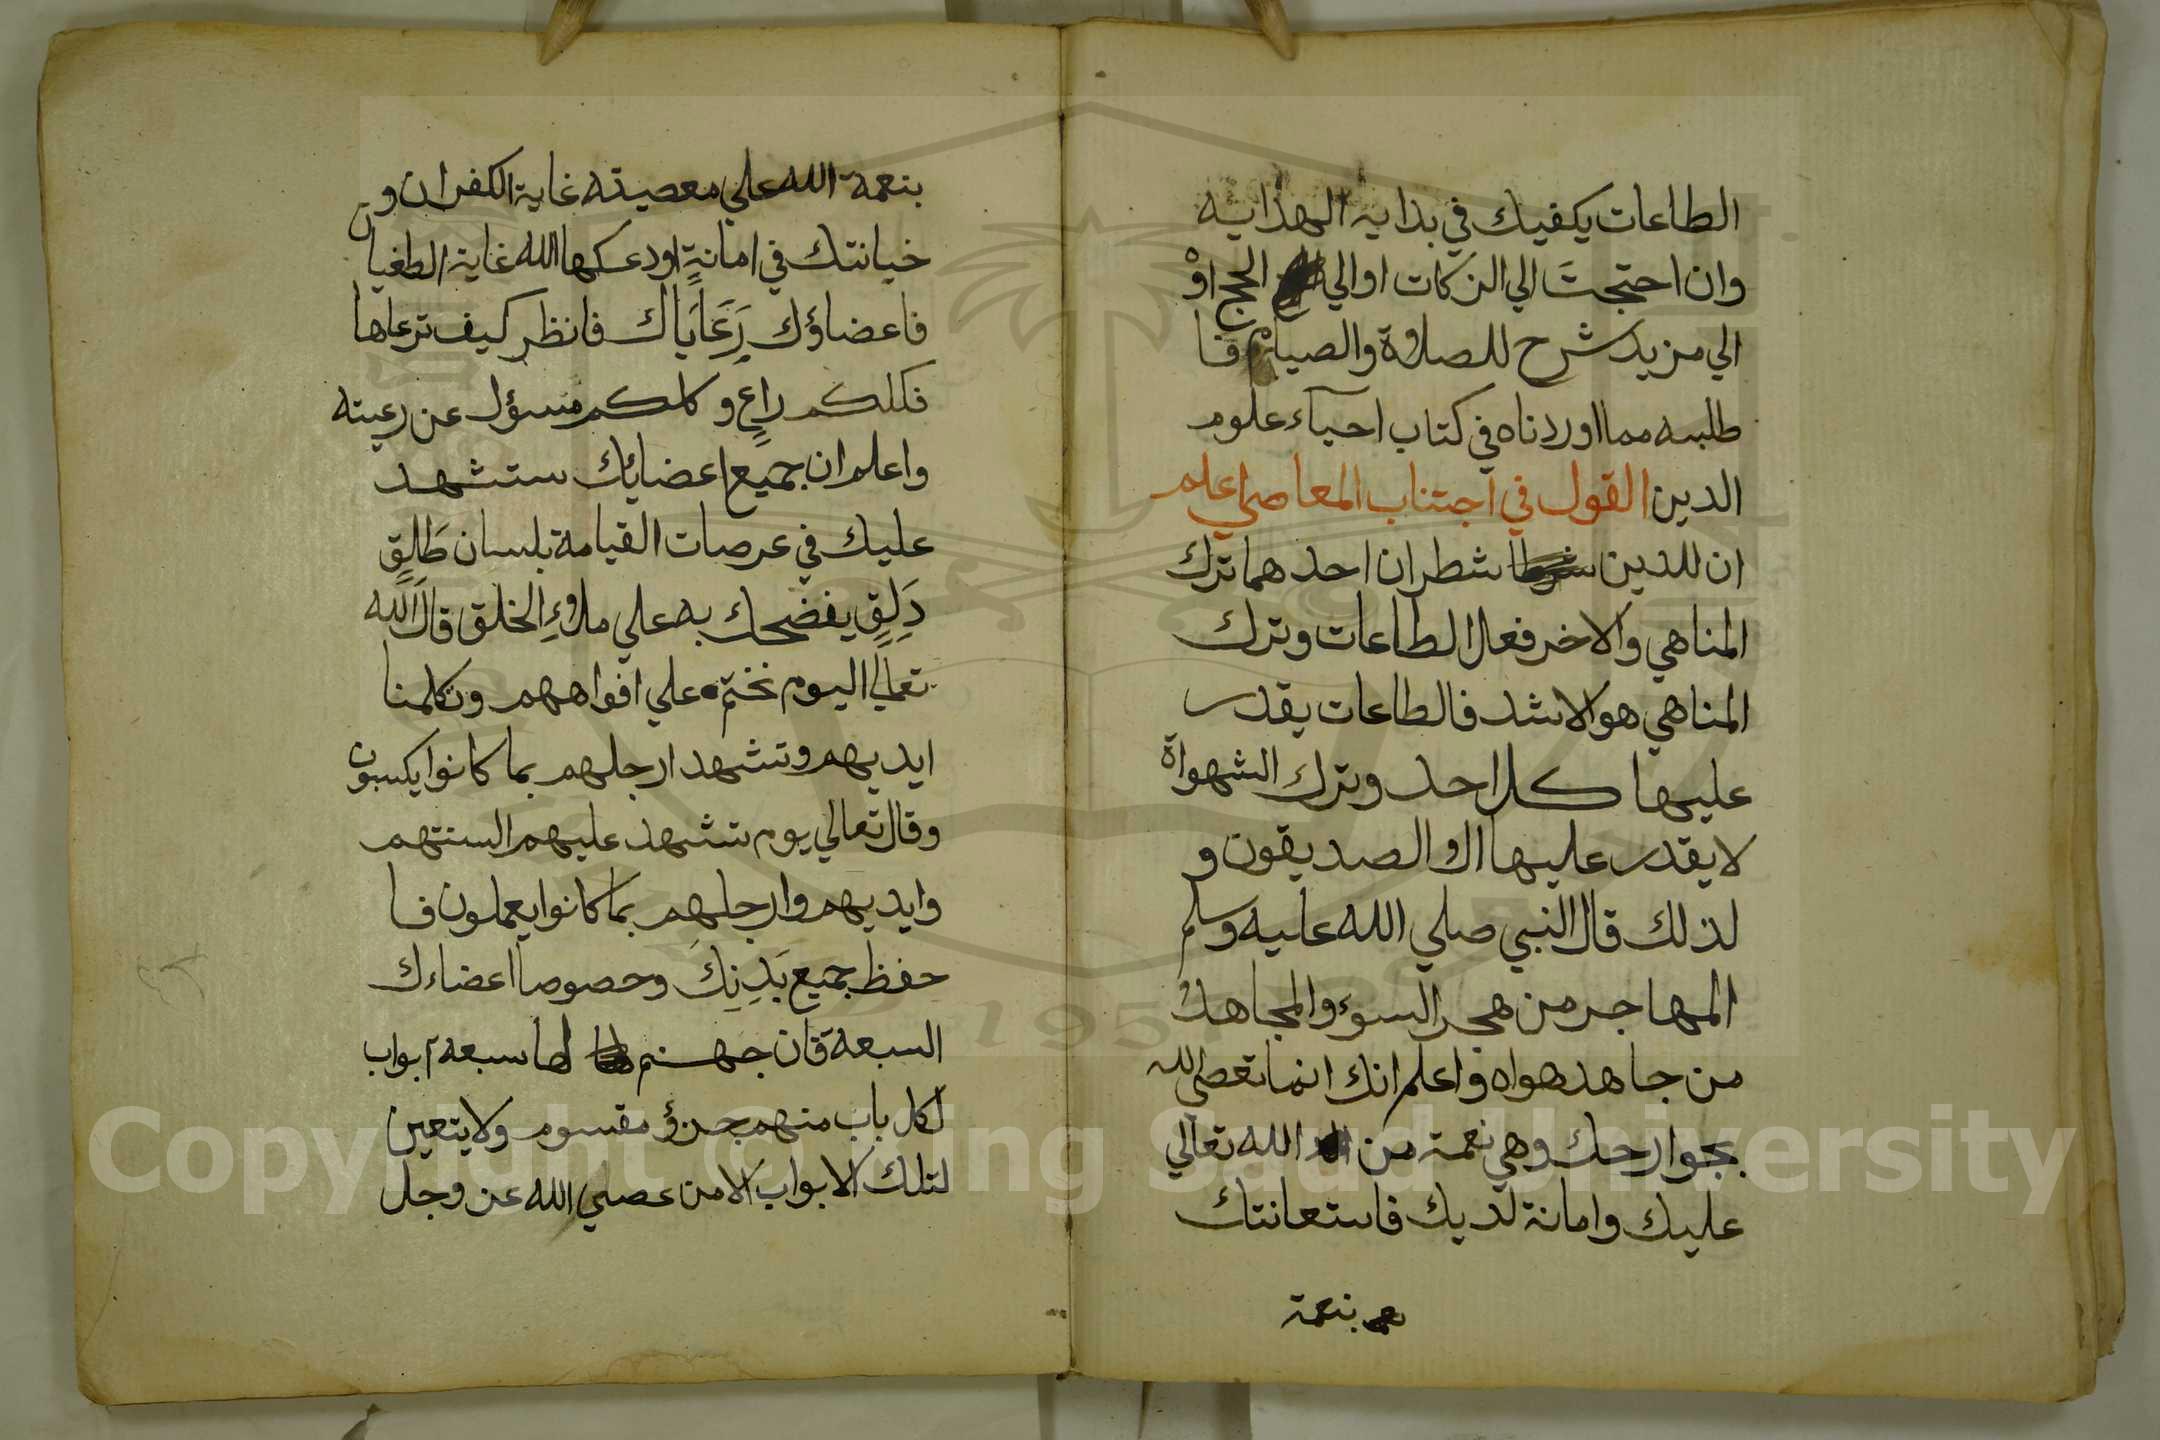 الطاعات يكفيك في بداية الهداية
وان احتجت الي الزكات او الي الحج او
الي مزيد شرح للصلاة والصيام فا
طلبه مما اوردناه في كتاب احيآء علوم
الدين القول في اجتناب المعاصي اعلم
ان للدين شطران احدهما ترك
المناهي والاخر فعل الطاعات وترك
المناهي هو الاشد فالطاعات يقدر
عليها كل احد وترك الشهواة
لا يقدر عليها الا الصديقون و
لذلك قال النبي صلي الله عليه وسلم
المهاجر من هجر السوء والمجاهد
من جاهد هواه واعلم انك انما تعصي الله
بجوارحك وهي نعمة من الله تعالي
عليك وامانة لديك فاستعانتك
بنعمة
بنعمة الله علي معصيته غاية الكفران و
خيانتك في امانةٍ اودعكها الله غاية الطغيان
فاعضاؤك رَعَايَاك فانظر كيف ترعاها
فكلكم راعٍ وكلكم مسؤل عن رعيته
واعلم ان جميع اعضائك ستشهد
عليك في عرصات القيامة بلسان طَلِقٍ
دَلِقٍ يفضحك به علي ملاءِ الخلق قال الله
تعالي اليوم نختم علي افواههم وتكلمنا
ايديهم وتشهد ارجلهم بما كانوا يكسبون
وقال تعالي يوم تشهد عليهم السنتهم
وايديهم وارجلهم بما كانوا يعملون فا
حفظ جميع بَدِنِكَ وخصوصا اعضاءك
السبعة فان جهنم لها سبعة ابواب
لكل باب منهم جزؤ مقسوم ولا يتعين
لتلك الابواب الا من عصي الله عز وجل
Copyright © King Saud University
1957